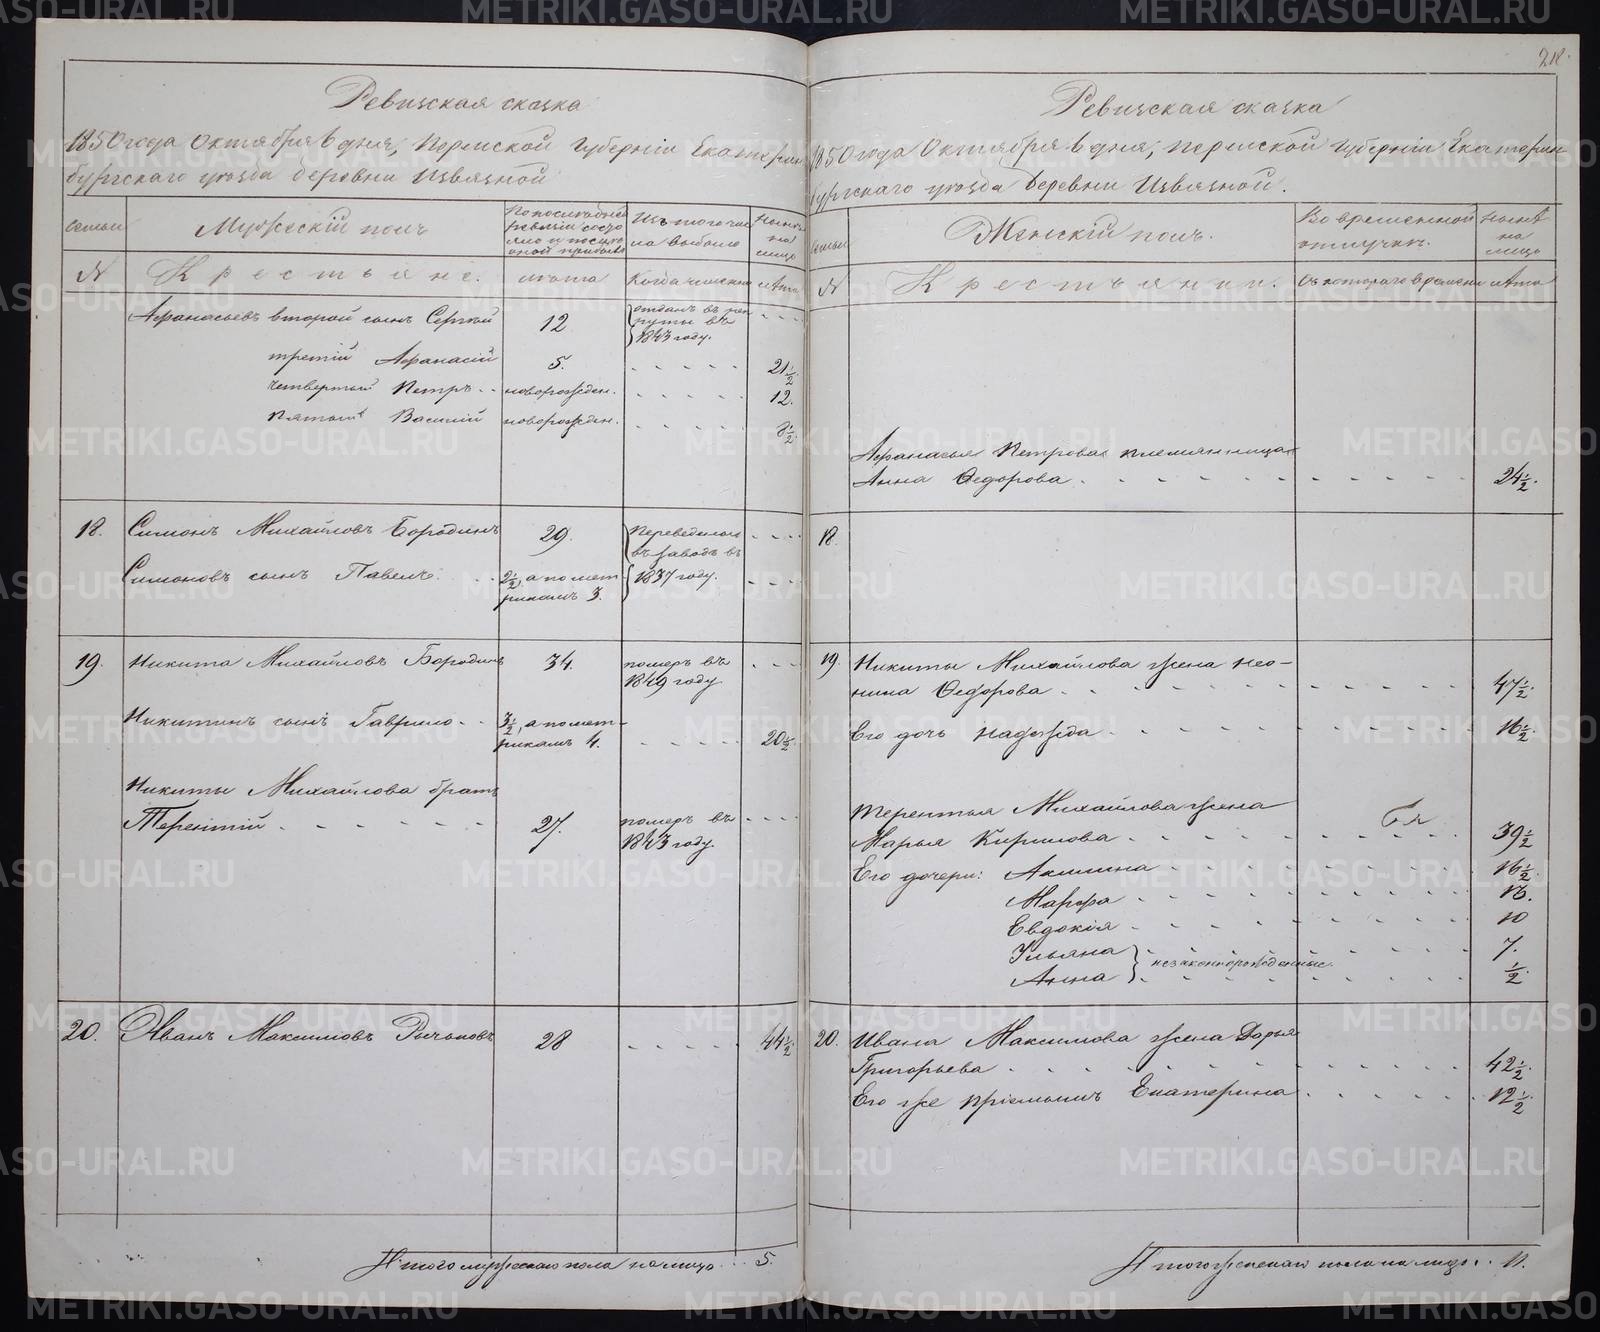 218.
Ревизская сказка
1850 года Октября 6 дня, Пермской Губернiи Екатерин
бургскаго уѣзда деревни Извѣзной
Семьи
Мужескiй полъ
По послѣдней
ревизiи состо
яло и послѣ
оной прибыло
Изъ того чис
ла выбыло
Нынѣ
на
лицо
N
Крестьяне.
лѣта
Когда именно
лѣта
Афанасьевъ второй сынъ Сергѣй
12
отданъ въ рек
руты въ
1843 году.
третiй Афанасiй
5.
21½
четвертый Петръ
новорожден.
12.
пятый Василiй
новорожден.
8½.
18.
Симонъ Михайловъ Бородинъ
29.
Переведены
въ заводъ въ
1837 году.
Симоновъ сынъ Павелъ
2½, а по мет
рикамъ 3.
19.
Никита Михайловъ Бородинъ
34.
померъ въ
1849 году
Никитинъ сынъ Гаврило
3½, а по мет-
рикамъ 4.
20½
Никиты Михайлова братъ
Терентiй
27.
померъ въ
1843 году.
20.
Иванъ Максимовъ Рычковъ
28
44½
Итого мужескаго пола на лицо
5.
Ревизская сказка
1850 года Октября 6 дня, Пермской Губернiи Екатерин
бургскаго уѣзда деревни Извѣзной.
Семьи
Женскiй полъ.
Во временной
отлучкѣ.
Нынѣ
на
лицо
N
Крестьянки.
Съ котораго времени
лѣта
Афанасья Петрова племянница
Анна Ѳедорова
24½.
18.
19.
Никиты Михайлова жена Нео-
нила Ѳедорова
47½.
Его дочь Надежда
16½.
Терентья Михайлова жена
Марья Кирилова
39½
Его дочери: Акилина
16½.
Марфа
13.
Евдокiя
10
Ульяна
7.
незаконнорожденные.
Анна
½
20.
Ивана Максимова жена Дарья
Григорьева
42½.
Его же прiемышъ Екатерина
12½.
Итого женскаго пола на лицо
11.
METRIKI.GASO-URAL.RU